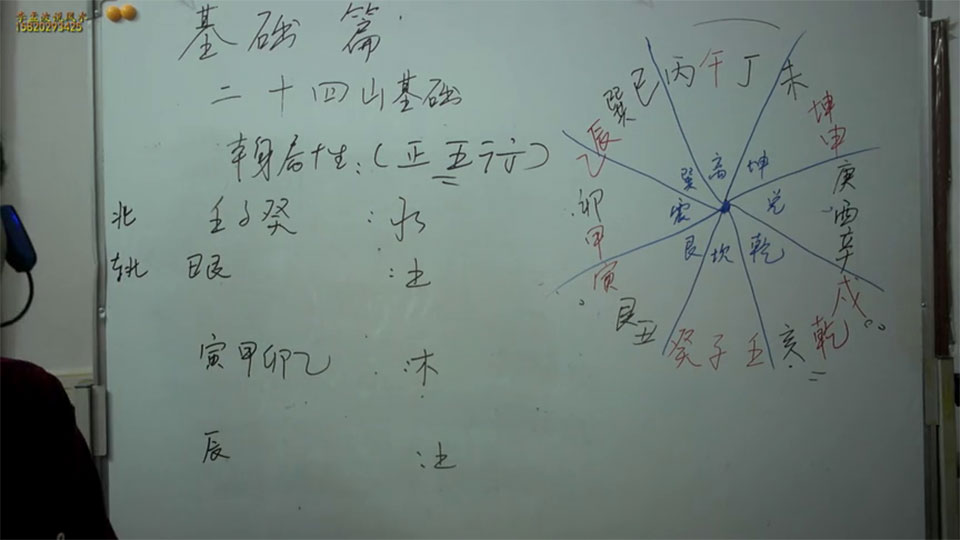 基础篇
二十四山基础
本身属性:(正五行)
北 壬子癸 :水
东北 丑艮 :土
寅甲卯乙 :木
辰 :土
巳丙午丁未
巽 坤
辰 申
乙 庚
巽离坤
卯 震 兑 酉
甲 辛
艮坎乾
寅 戌
艮丑癸子壬亥乾